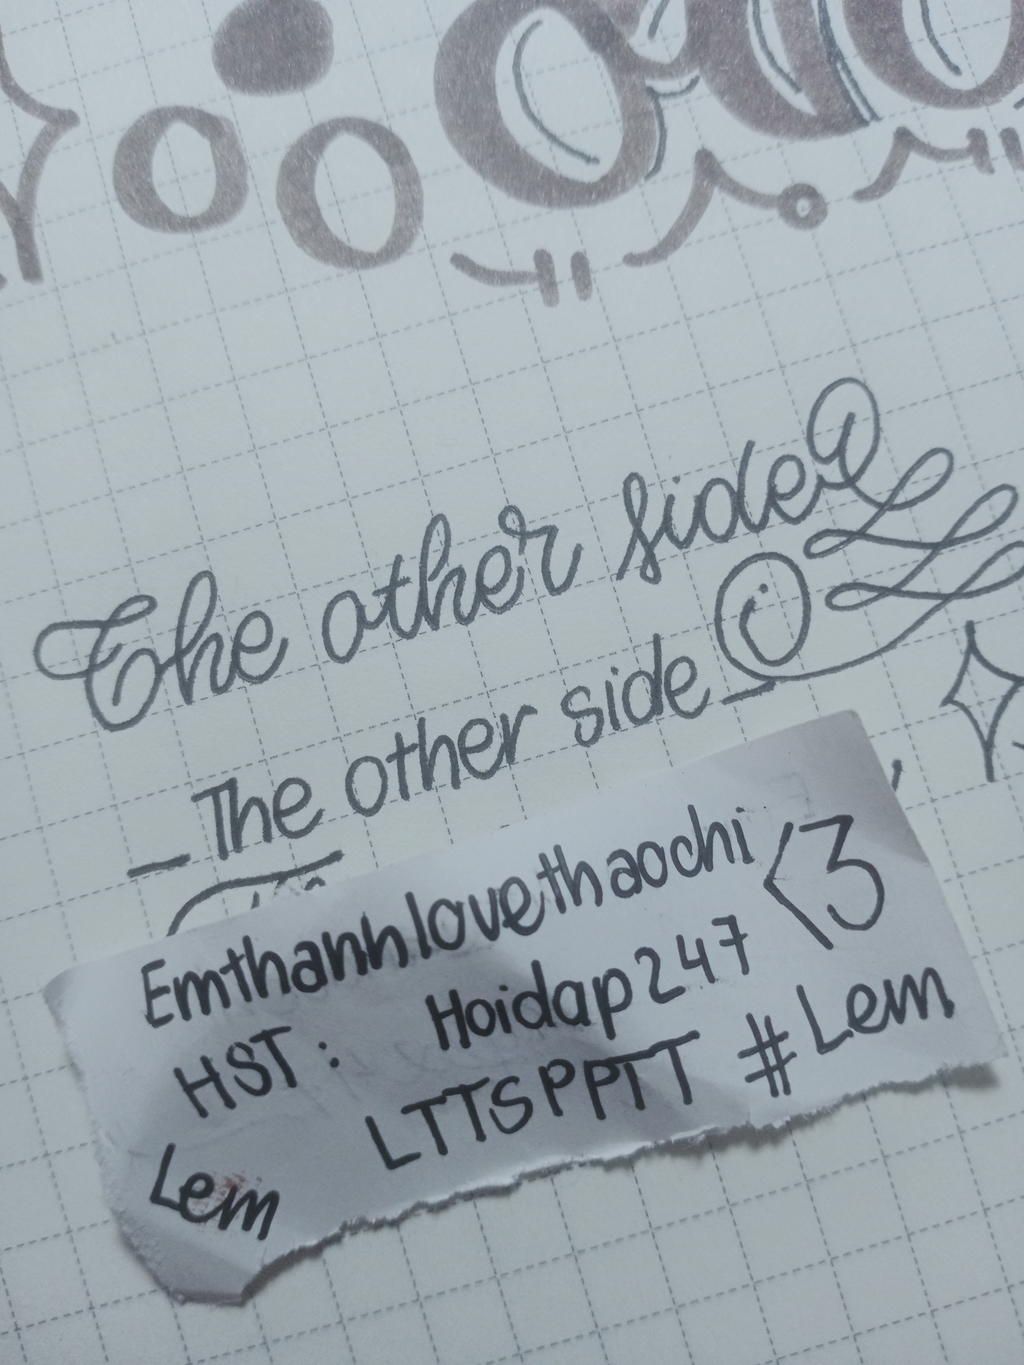 The other side
The other side
Emthanhlovethaochi <3
HST: Hoidap247
LTTSPPTT #Lem
Lem